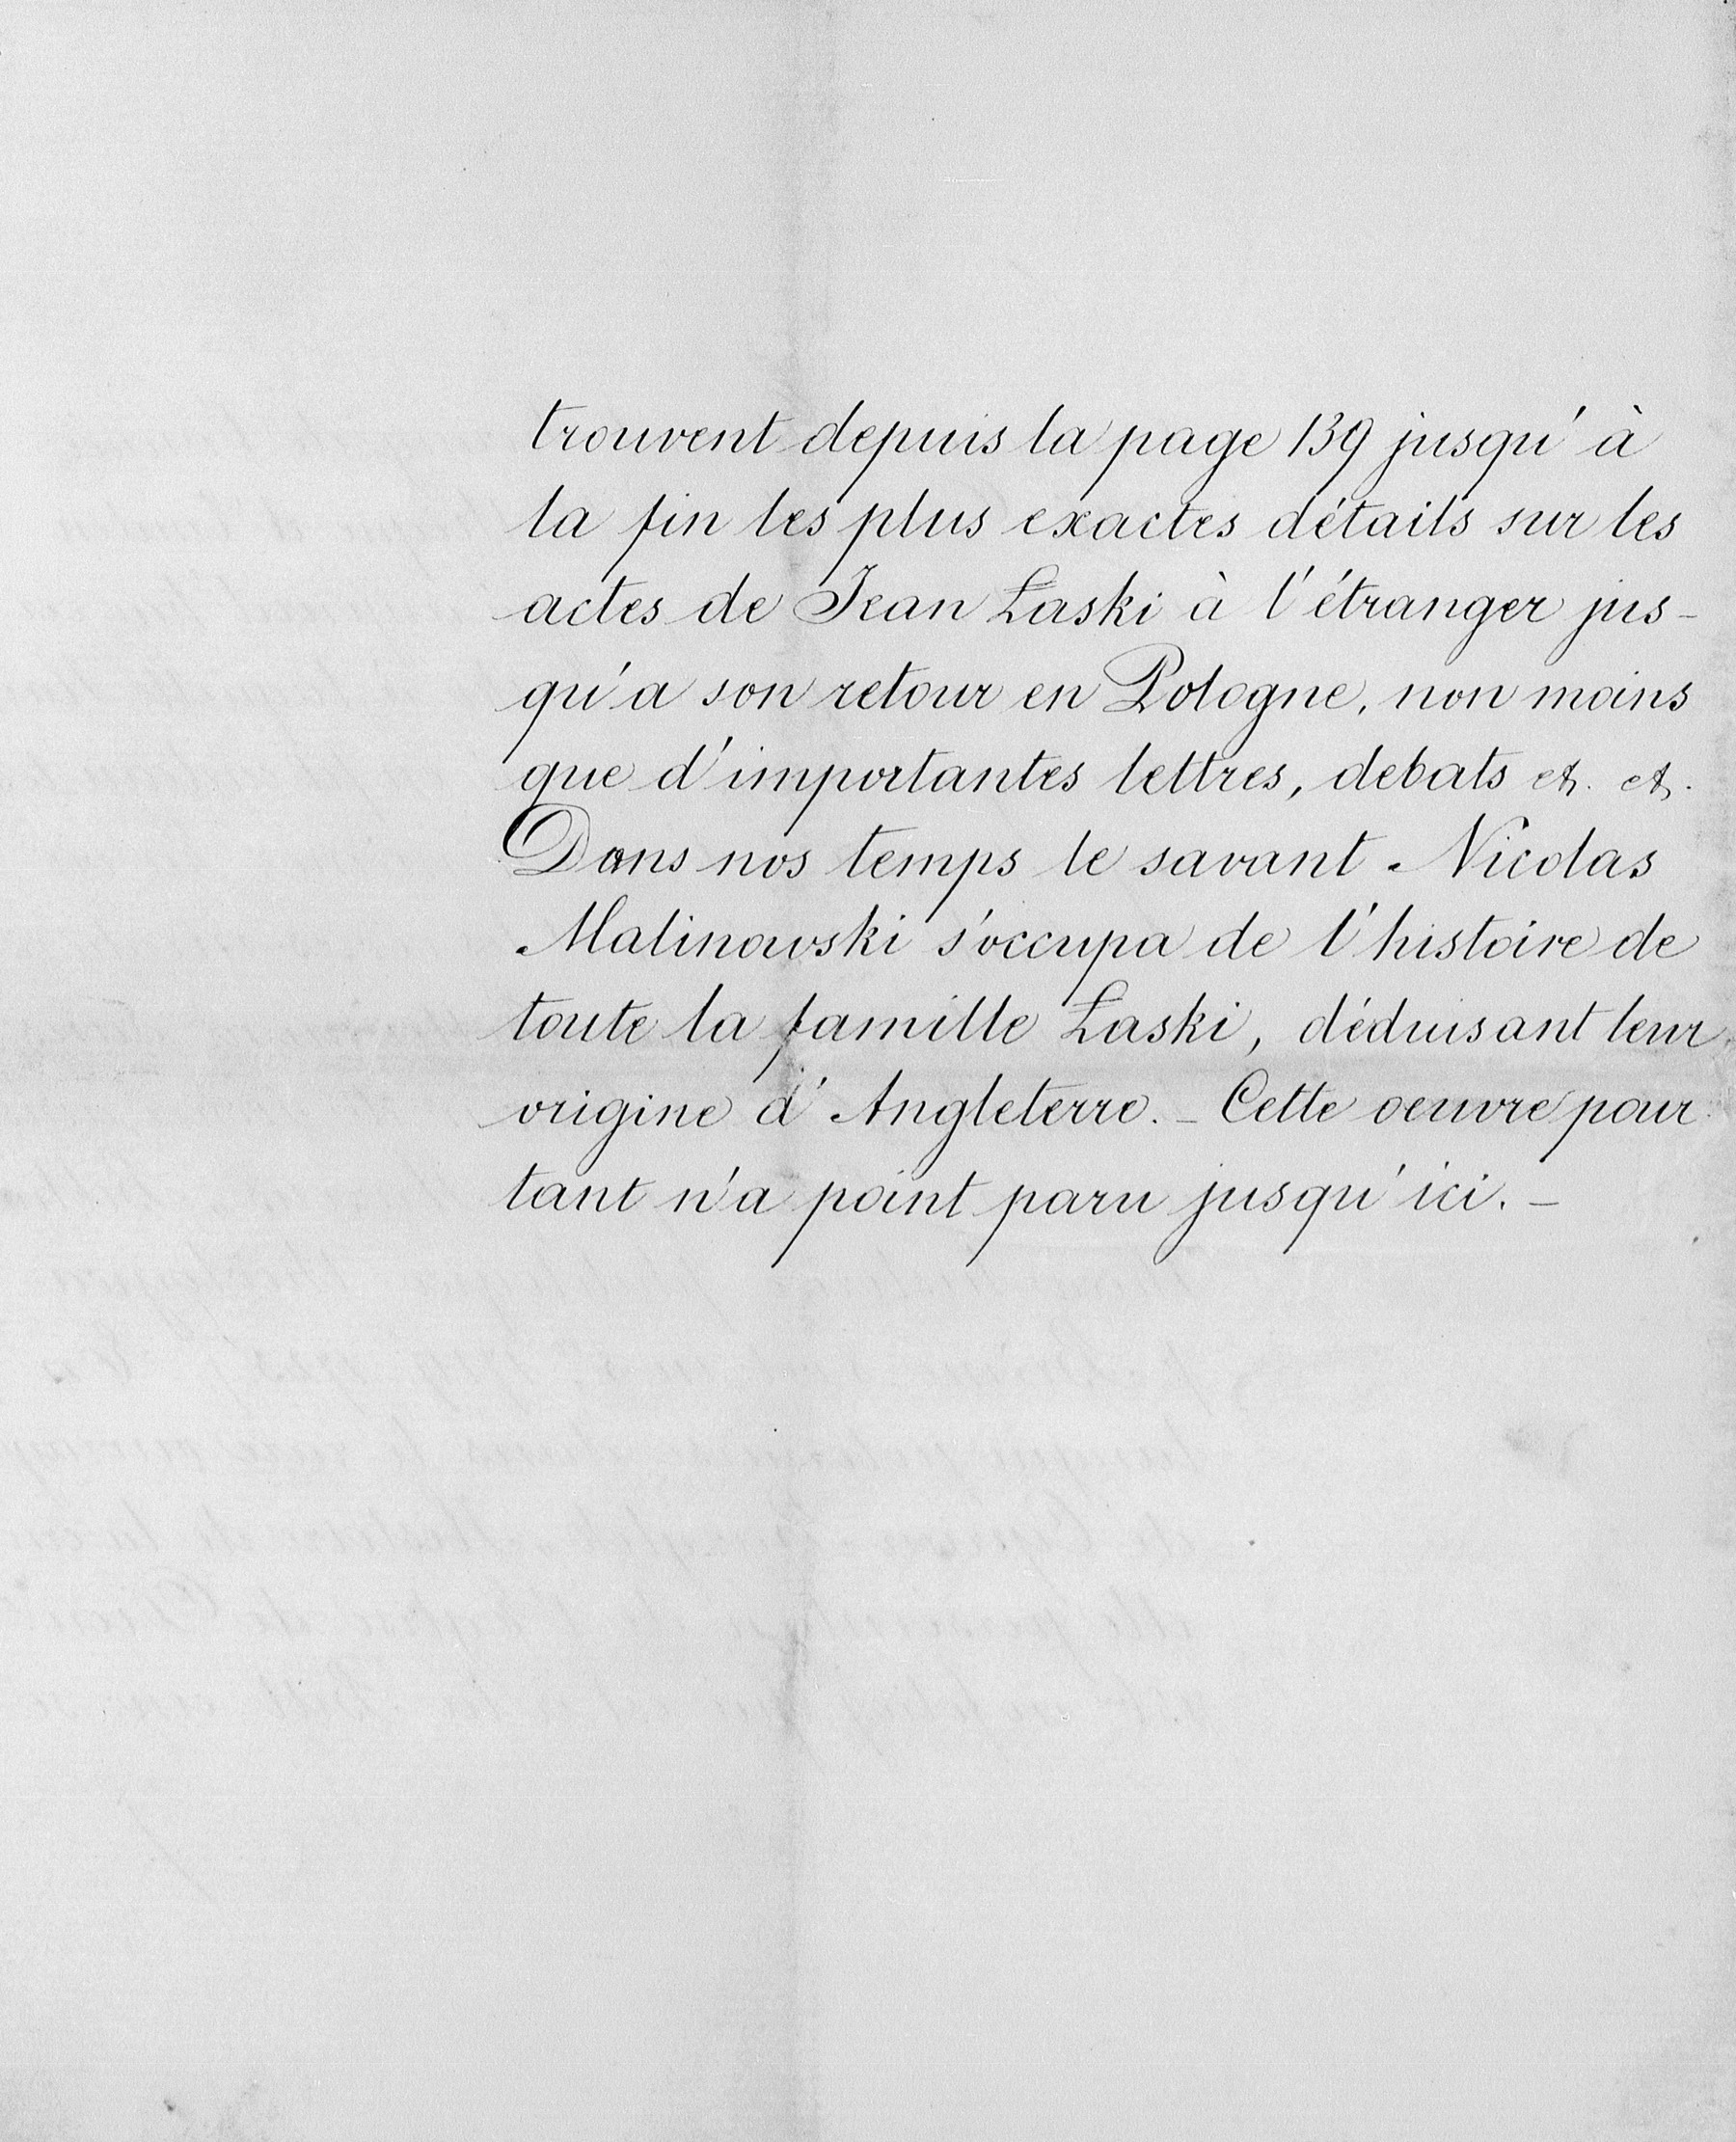 trouvent depuis la page 139 jusqu'à
la fin les plus exactes détails sur les
actes de Jean Łaski à l'étranger jus-
qu'a son retour en Pologne, non moins
que d'importantes lettres, debats etc. etc.
Dans nos temps le savant Nicolas
Malinowski s'occupa de l'histoire de
toute la famille Łaski, déduisant leur
origine d'Angleterre. - Cette oeuvre pour
tant n'a point paru jusqu'ici. -